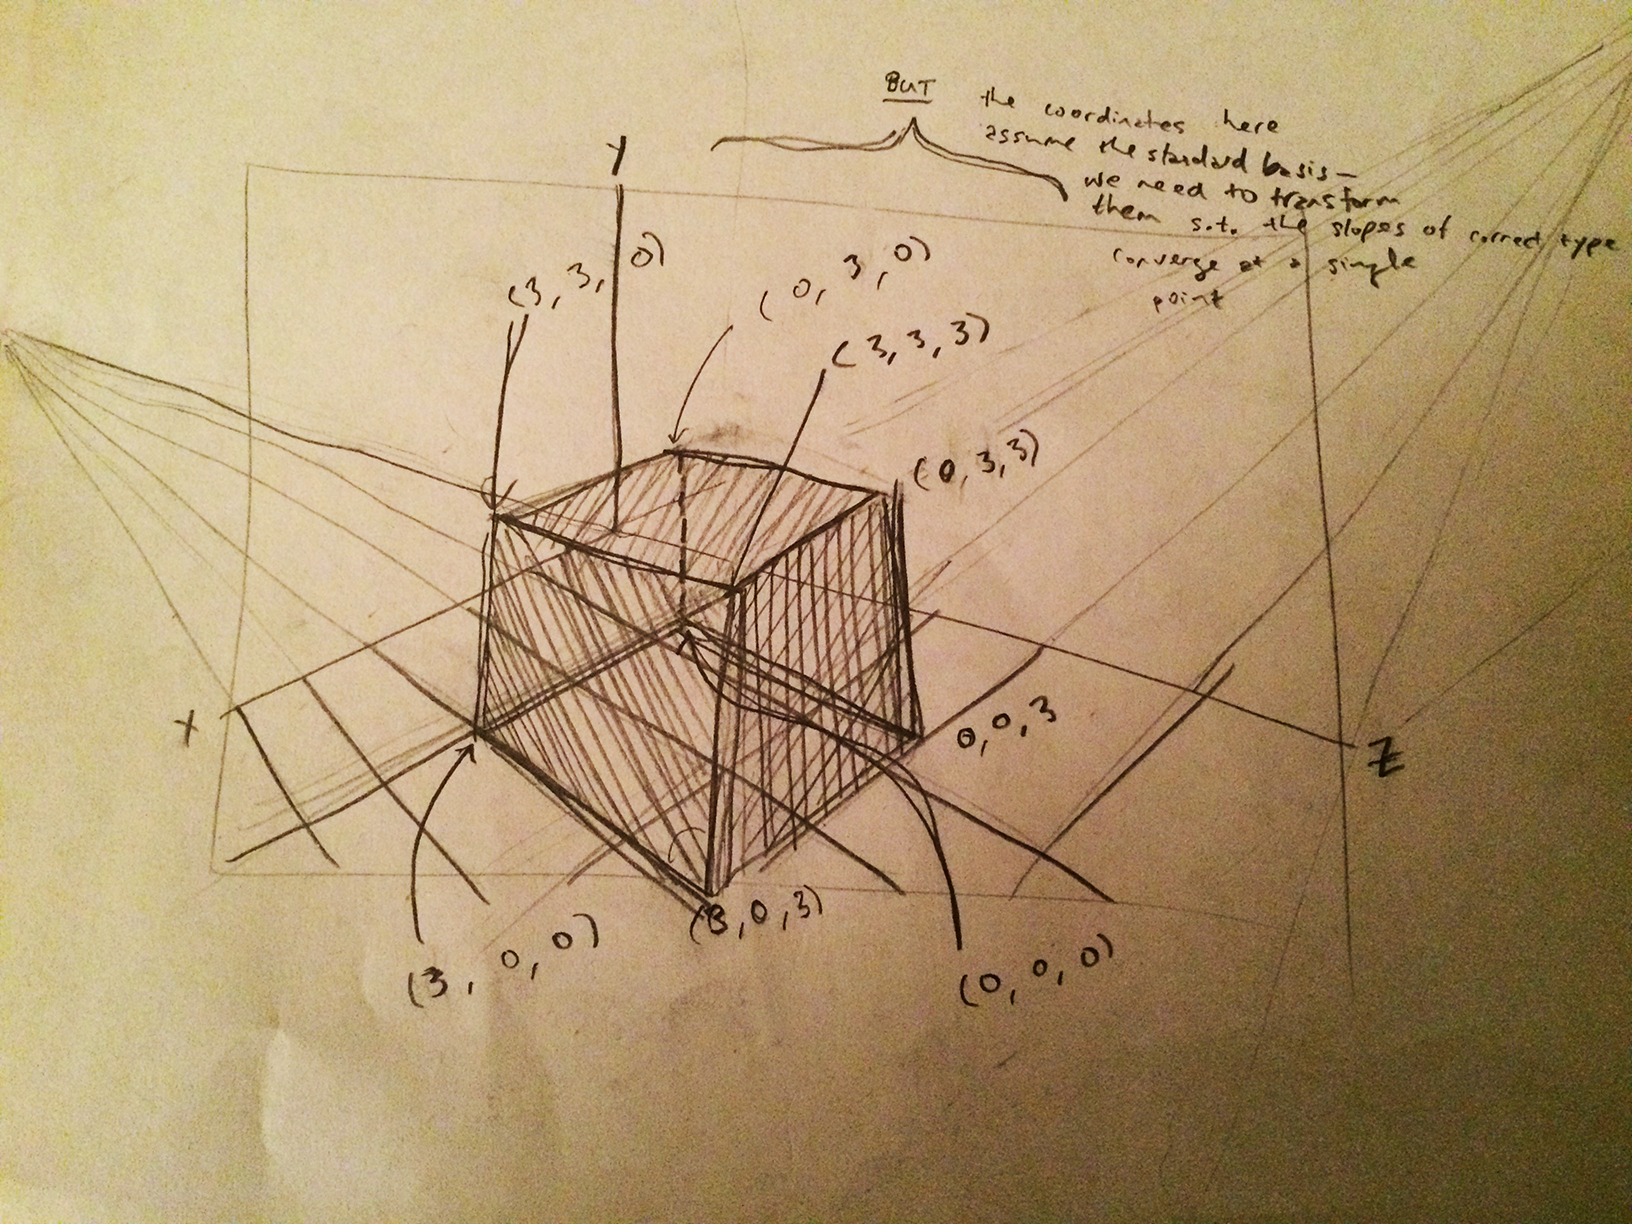 BUT the coordinates here
assume the standard basis—
we need to transform
them s.t. the slopes of correct type
converge at a single
point
Y
(3, 3, 0)
(0, 3, 0)
(3, 3, 3)
(0, 3, 3)
X
0, 0, 3
Z
(3, 0, 3)
(3, 0, 0)
(0, 0, 0)